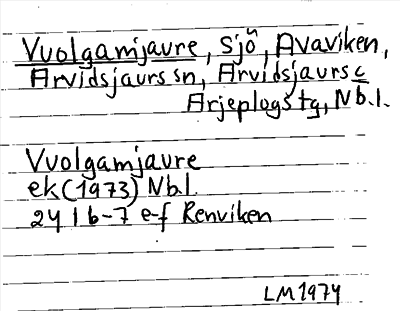 Vuolgamjaure, sjö, Avaviken,
Arvidsjaurs sn, Arvidsjaurs c
Arjeplogs tg, Nb.l.
Vuolgamjaure
ek (1973) Nb.l.
24 I b-7 e-f Renviken
LM 1974